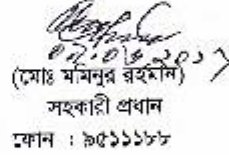 ০৭.০৬.২০১৭
(মোঃ মমিনুর রহমান)
সহকারী প্রধান
ফোন : ৯৫১১১৮৮